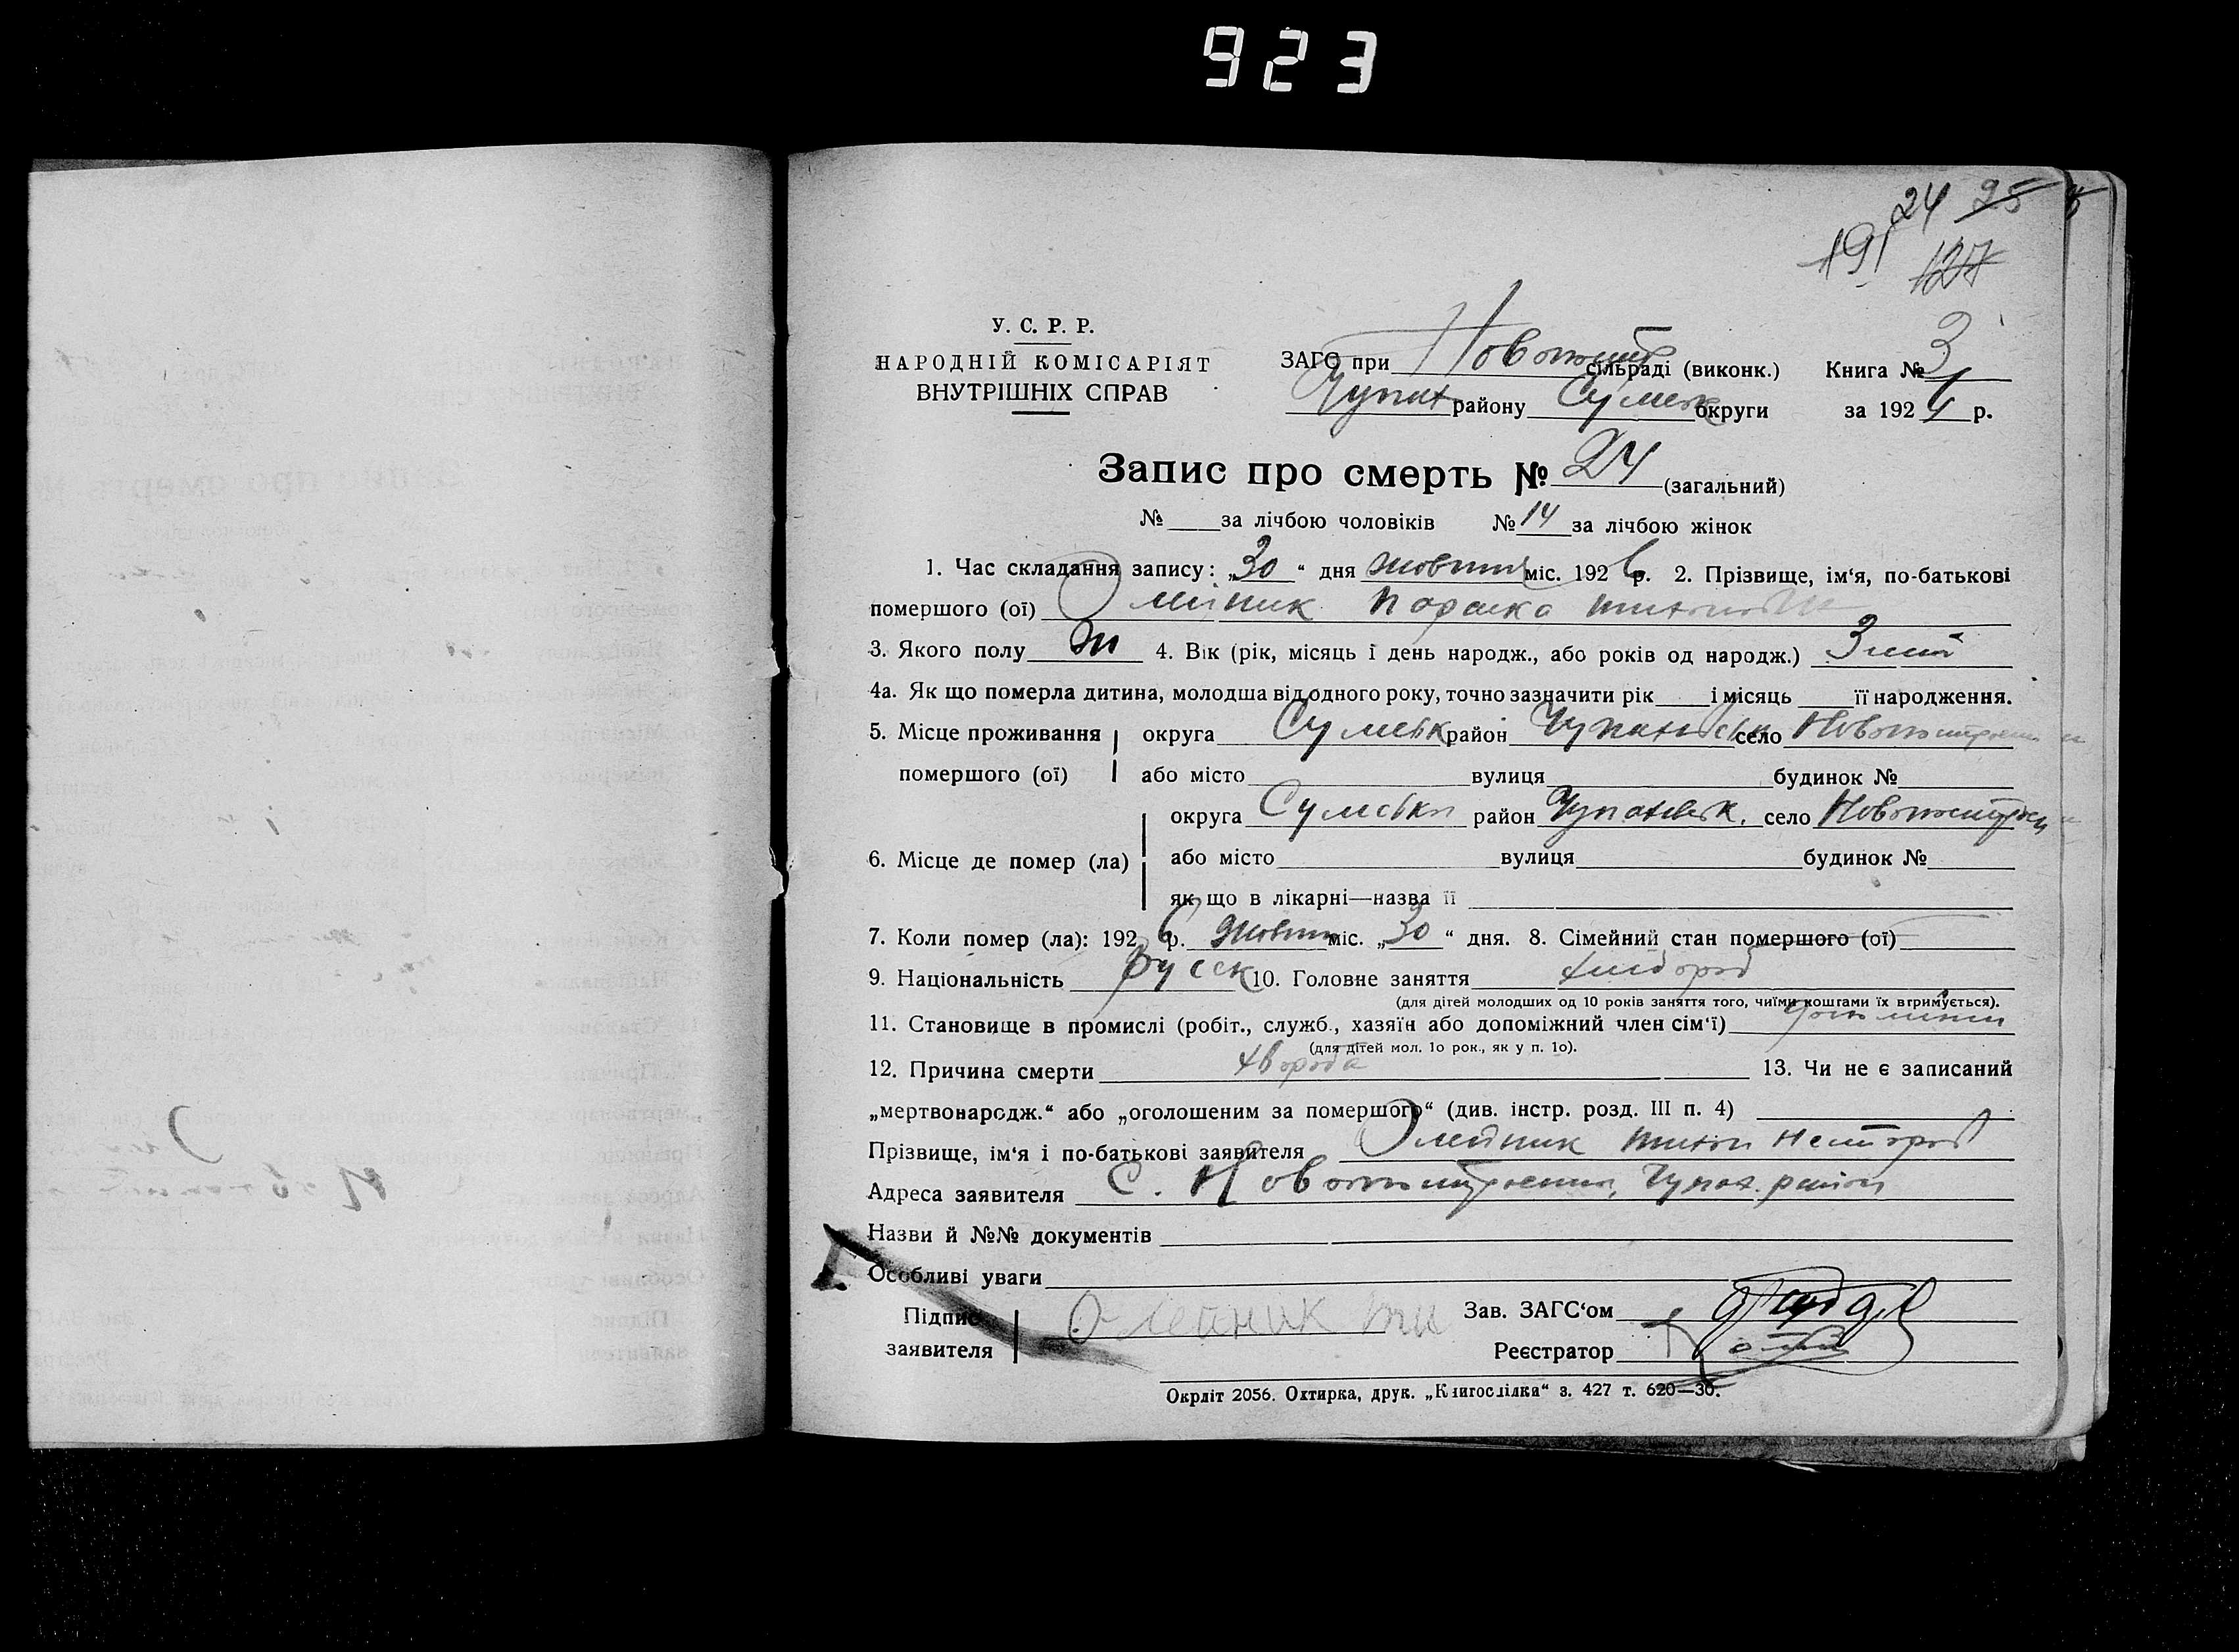 923
24 25
191 127
У. С. Р. Р.
НАРОДНІЙ КОМІСАРІЯТ
ВНУТРІШНІХ СПРАВ
ЗАГС при сільраді (виконк.) Книга № 3
Чупах району Сумськ округи за 1926 р.
Запис про смерть № 24 (загальний)
№ за лічбою чоловіків № 14 за лічбою жінок
1. Час складання запису: „30“ дня жовтня міс. 1926 р. 2. Прізвище, ім‘я, по-батькові
помершого (ої) Олейник Параска
3. Якого полу Ж 4. Вік (рік, місяць і день народж., або років од народж.) 3
4а. Як що померла дитина, молодша від одного року, точно зазначити рік і місяць її народження.
5. Місце проживання округа Сумськ район село
помершого (ої) або місто вулиця будинок №
округа Сумська район Чупахівськ. село
6. Місце де помер (ла) або місто вулиця будинок №
як що в лікарні—назва її
7. Коли помер (ла): 1926 р. жовтня міс. „30“ дня. 8. Сімейний стан помершого (ої)
9. Національність русск 10. Головне заняття хлібороб
(для дітей молодших од 10 років заняття того, чиїми коштами їх втримується).
11. Становище в промислі (робіт., служб., хазяїн або допоміжний член сім‘ї)
(для дітей мол. 10 рок., як у п. 10).
12. Причина смерти хвороба 13. Чи не є записаний
„мертвонародж.“ або „оголошеним за помершого“ (див. інстр. розд. III п. 4)
Прізвище, ім‘я і по-батькові заявителя Олейник Тихон Несторов
Адреса заявителя С. Чупах. район
Назви й №№ документів
Особливі уваги
Підпис Олейник Ти Зав. ЗАГС‘ом
заявителя Реєстратор
Окрліт 2056. Охтирка, друк. „Книгоспілка“ з. 427 т. 620—30.